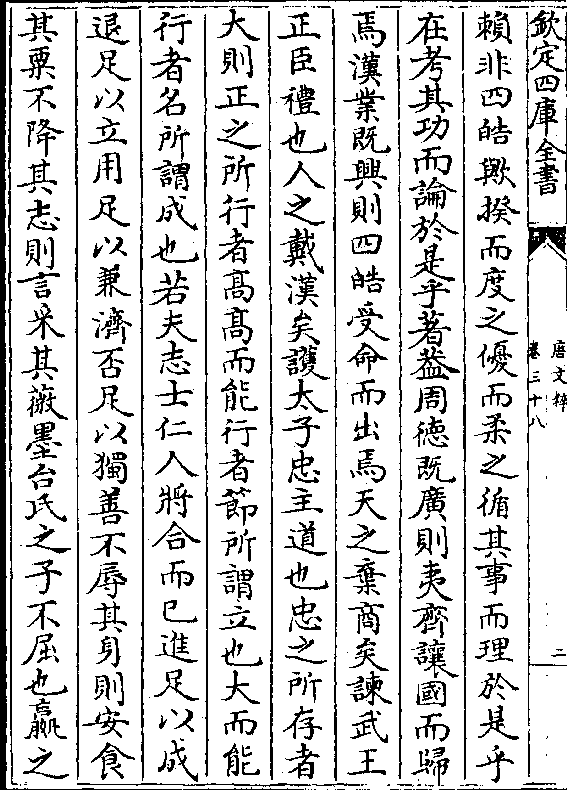 欽定四庫全書
唐文粹
卷三十八
二
賴非四皓歟揆而度之優而柔之循其事而理於是乎
在考其功而論於是乎著葢周徳既廣則夷齊讓國而歸
焉漢業既興則四皓受命而出焉天之棄商矣諫武王
正臣禮也人之戴漢矣護太子忠主道也忠之所存者
大則正之所行者髙髙而能行者節所謂立也大而能
行者名所謂成也若夫志士仁人將合而已進足以成
退足以立用足以兼濟否足以獨善不辱其身則安食
其粟不降其志則言采其薇墨台氏之子不屈也嬴之